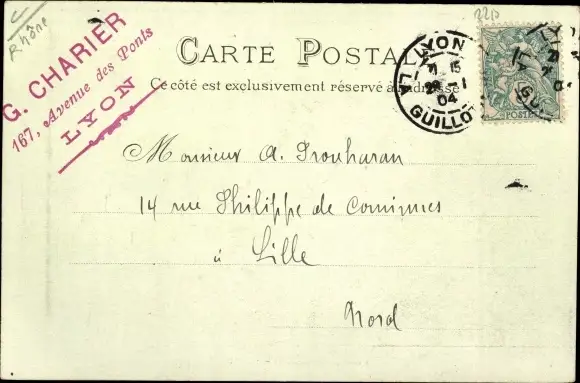 Rhône
G. CHARIER
167, Avenue des Ponts
LYON
CARTE POSTALE
Ce côté est exclusivement réservé à l'adresse
LYON
15
29 1
04
GUILLOT
POSTES
Monsieur A. Trouharan
14 rue Philippe de Comines
à Lille
Nord